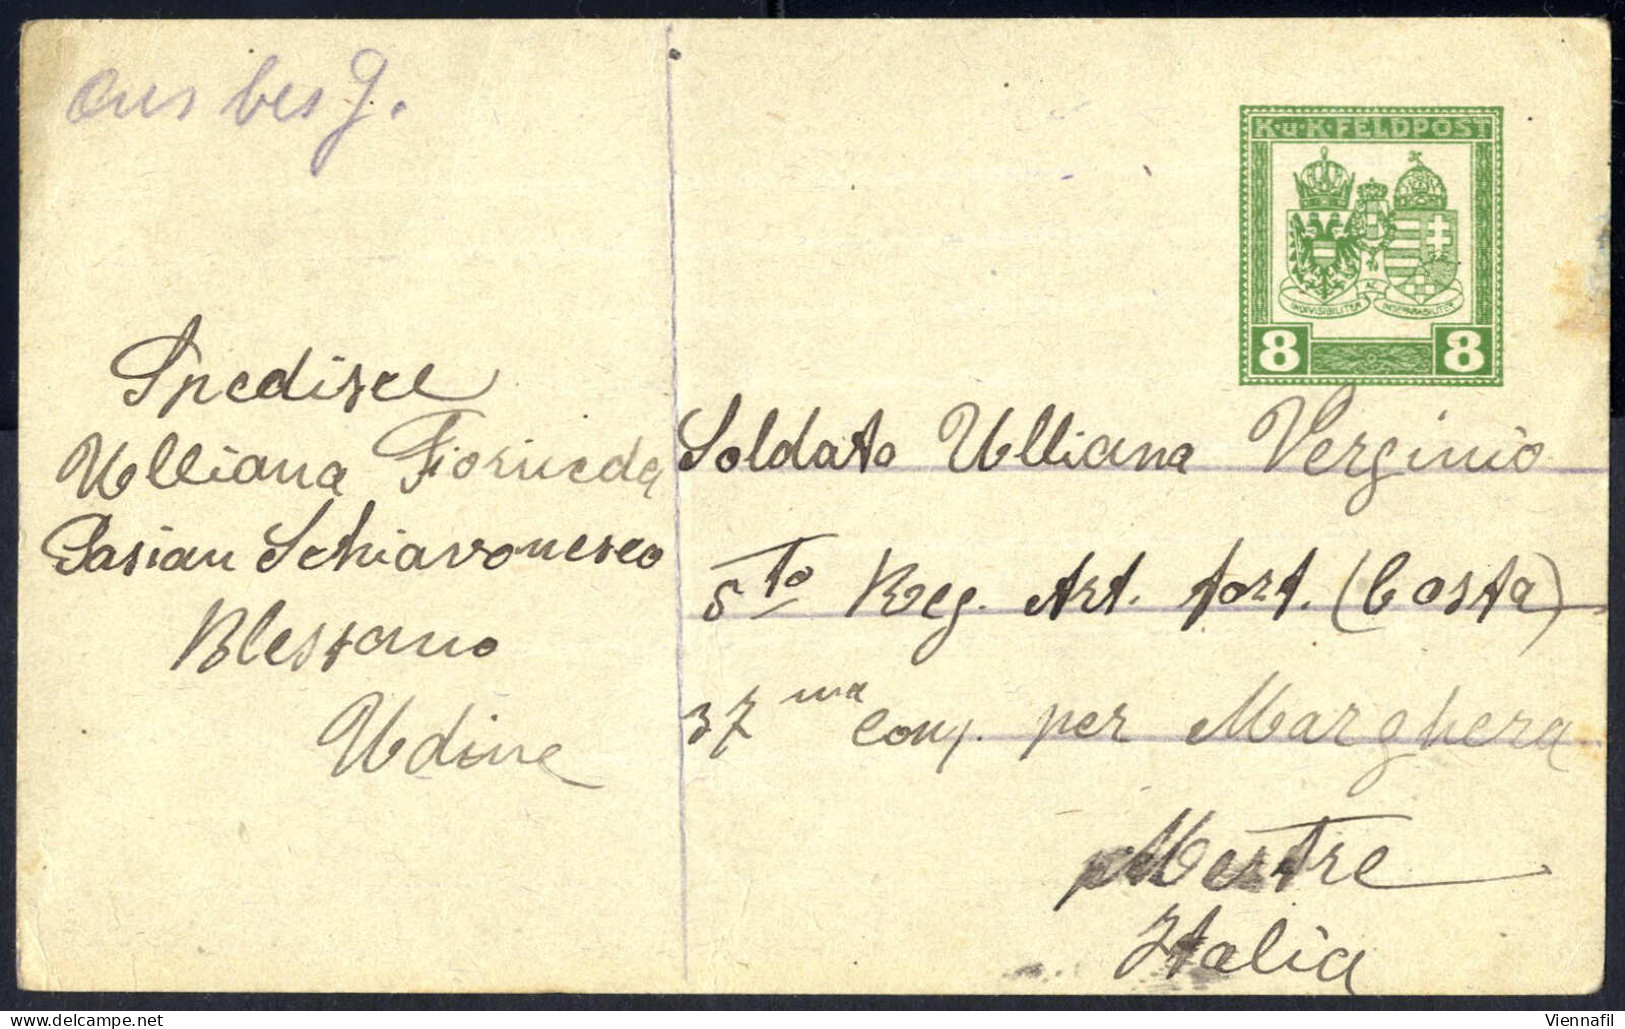 aus bes g.
K.u.K. FELDPOST
INDIVISIBILITER AC INSEPARABILITER
8 8
Spedisce
Ulliana
Pasian Schiavonesco
Blessano
Udine
Soldato Ulliana Verginio
5to Reg. Art. fort. (Costa)
37ma Comp. per Marghera
Mestre
Italia
delcampe.net
Viennafil